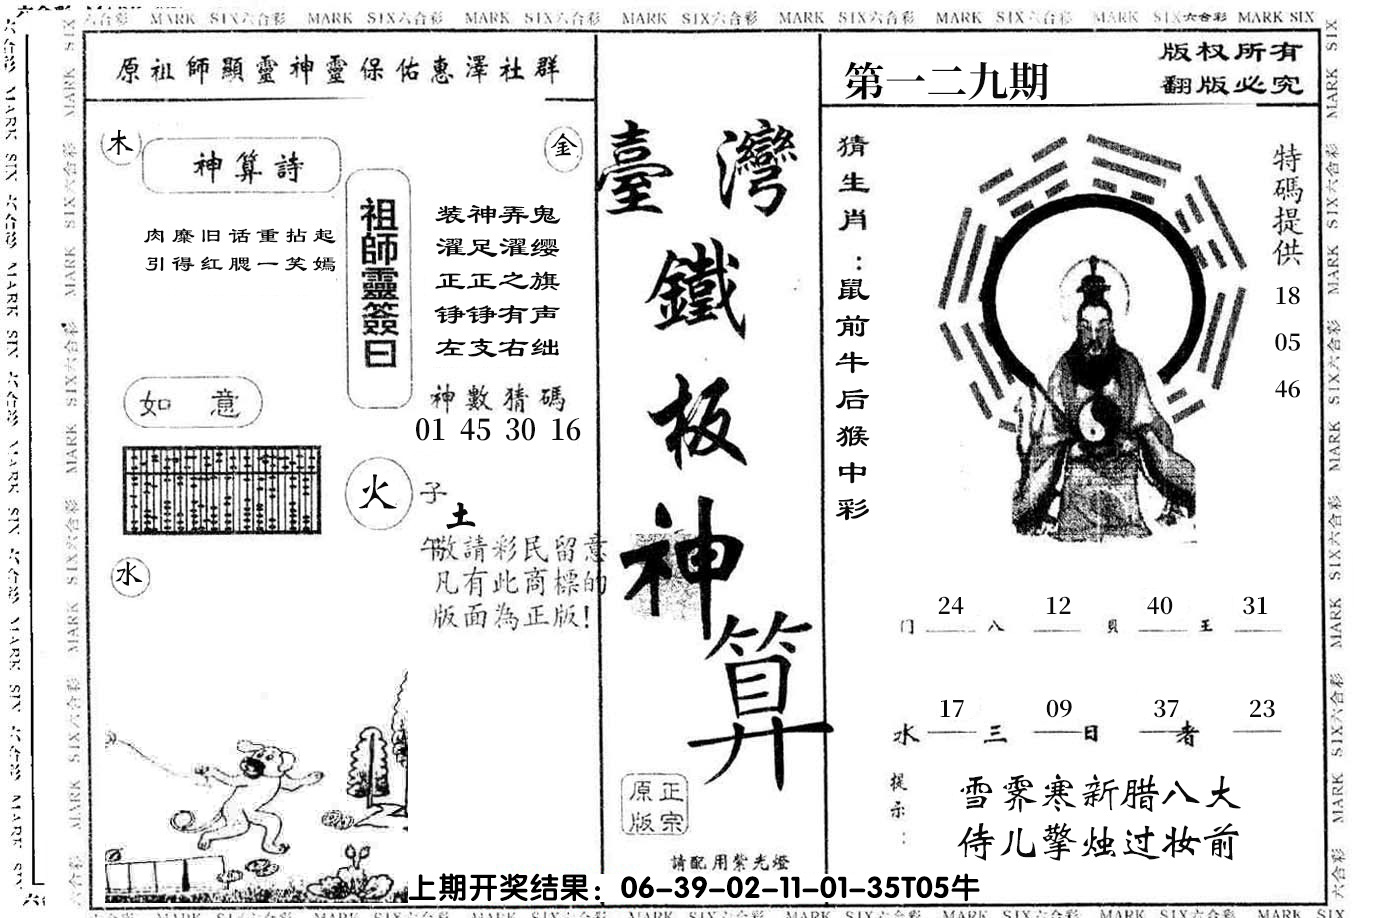 MARK SIX六合彩 MARK SIX六合彩 MARK SIX六合彩 MARK SIX六合彩 MARK SIX六合彩 MARK SIX六合彩 MARK SIX六合彩 MARK SIX
原祖師顯靈神靈保佑惠澤社群
木
神算詩
金
肉糜旧话重拈起
引得红腮一笑嫣
祖師靈簽曰
装神弄鬼
濯足濯缨
正正之旗
铮铮有声
左支右绌
神數猜碼
01 45 30 16
如意
火
子
土
午
敬請彩民留意
凡有此商標的
版面為正版!
水
臺灣
鐵
板
神
算
原正
版宗
請配用紫光燈
第一二九期
版权所有
翻版必究
猜生肖:鼠前牛后猴中彩
特碼提供
18
05
46
24 12 40 31
门 八 貝 王
17 09 37 23
水 三 日 者
提示:
雪霁寒新腊八大
侍儿擎烛过妆前
上期开奖结果：06-39-02-11-01-35T05牛